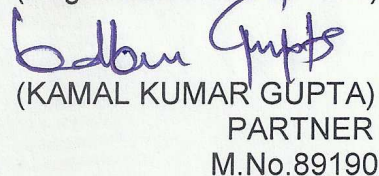 (KAMAL KUMAR GUPTA)
PARTNER
M.No.89190